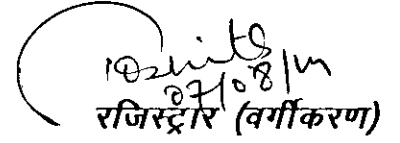 07/08/14
रजिस्ट्रार (वर्गीकरण)